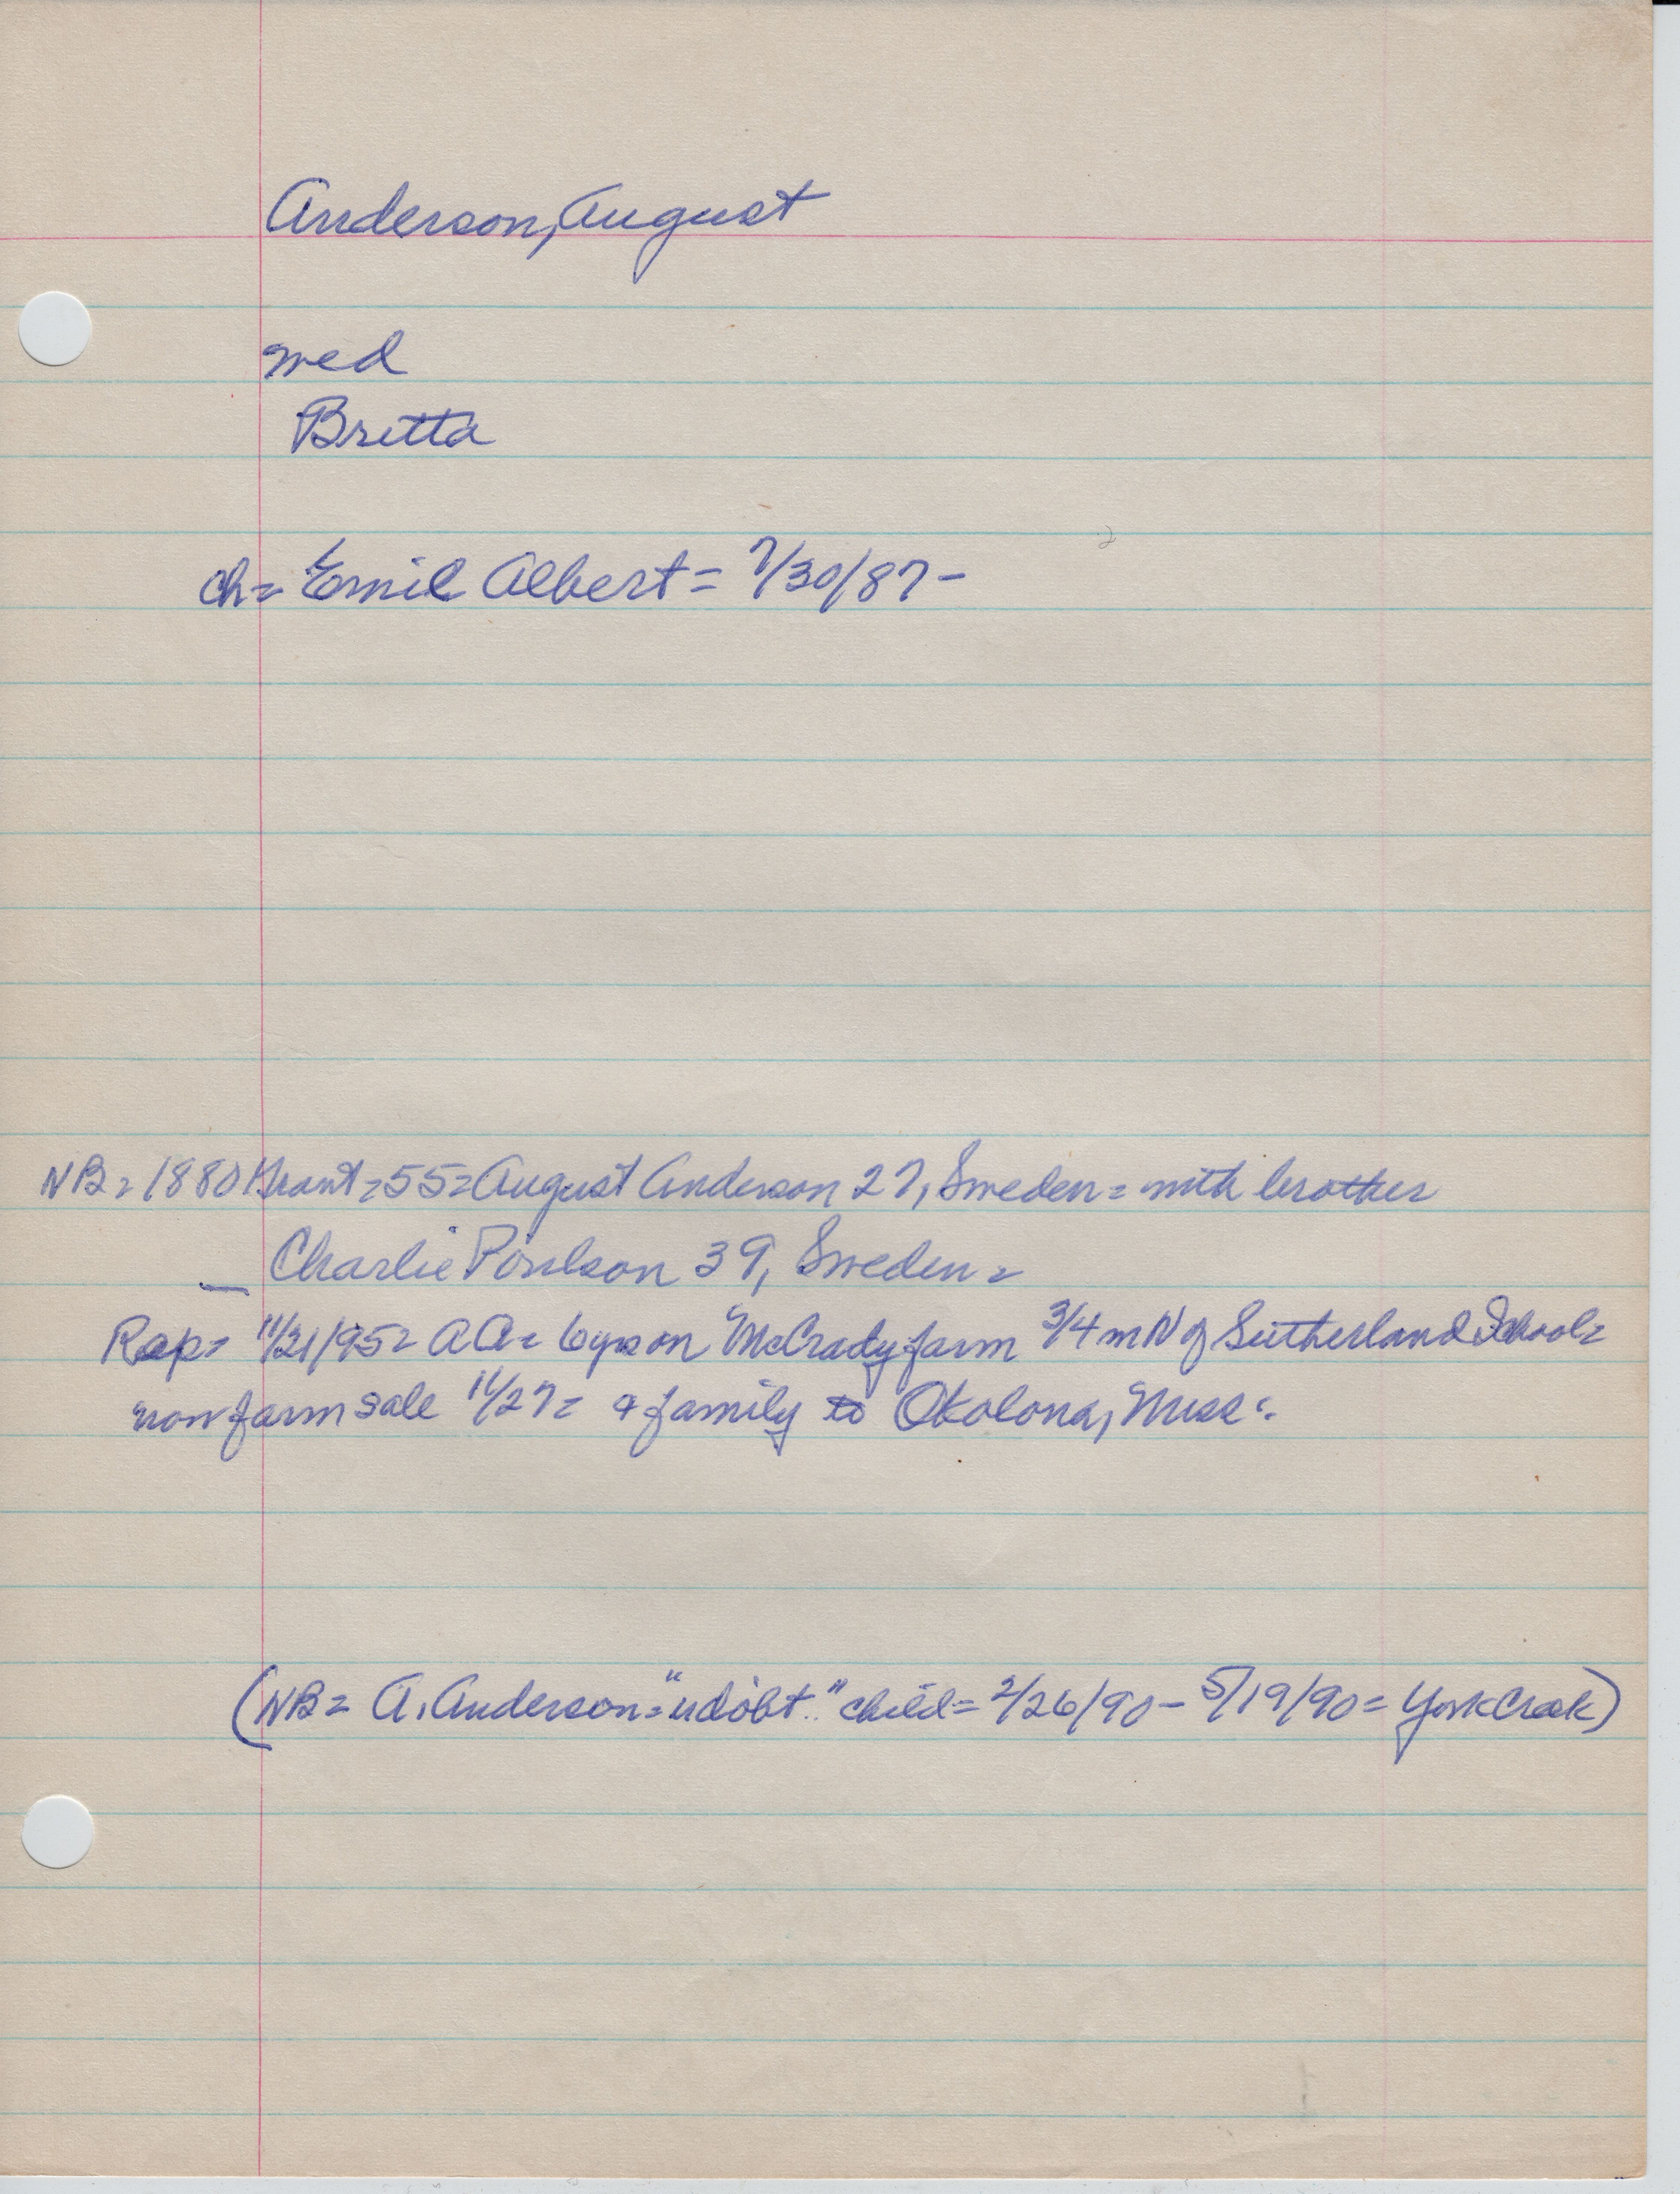 Anderson, August
wed
Britta
ch= Emil Albert = 7/30/87 -
NB = 1880 Grant = 55 = August Anderson 27, Sweden = with brother
Charlie Poulson 39, Sweden =
Rep = 11/21/95 = AA = 6 yrs on McCrady farm 3/4 m N of Sutherland School =
now farm sale 11/27 = & family to Okolona, Miss =.
(NB = A. Anderson = "udöbt." child = 2/26/90 - 5/19/90 = York Creek)